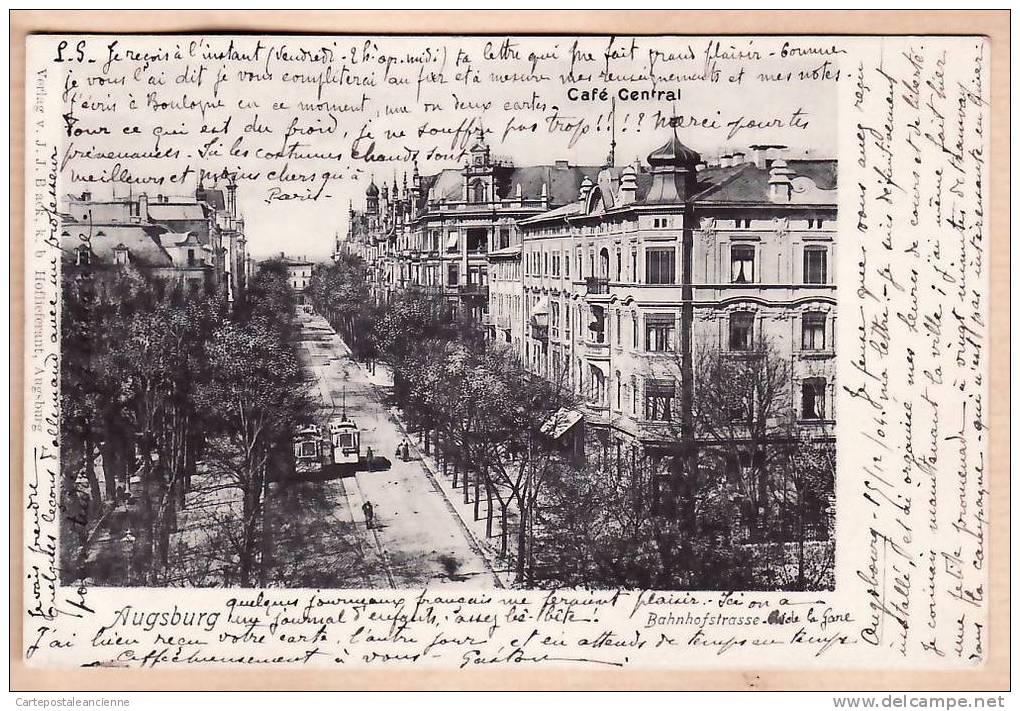 P.S. Je reçois à l'instant (Vendredi - 2h. apr. midi) ta lettre qui me fait grand plaisir - Comme
je vous l'ai dit je vous complèterai au fur et à mesure mes renseignements et mes notes.
J'écris à Boulogne en ce moment, une ou deux cartes -
Café Central
Pour ce qui est du froid, je ne souffre pas trop!!!? Merci pour tes
prévenances. Si les costumes chauds sont
meilleurs et moins chers qu'à
Paris -
Verlag v. J. J. Brack, k. b. Hoflieferant, Augsburg
Je vais prendre
quelques leçons d'allemand avec un professeur
Augsburg
quelques journaux français me feraient plaisir. Ici on a
un journal d'enfants, assez bête!
Bahnhofstrasse de la Gare
J'ai bien reçu votre carte, l'autre jour et en attends de temps en temps
affectueusement à vous - Gaston
Augsbourg - 15/12/04. Je pense que vous avez reçu
ma lettre - je suis définitivement
installé, et ai organisé mes heures de cours et de liberté.
Je connais maintenant la ville; j'ai même fait hier
une petite promenade à vingt minutes de tramway
dans la campagne - qui n'est pas intéressante en hiver.
Cartepostaleancienne
www.delcampe.net